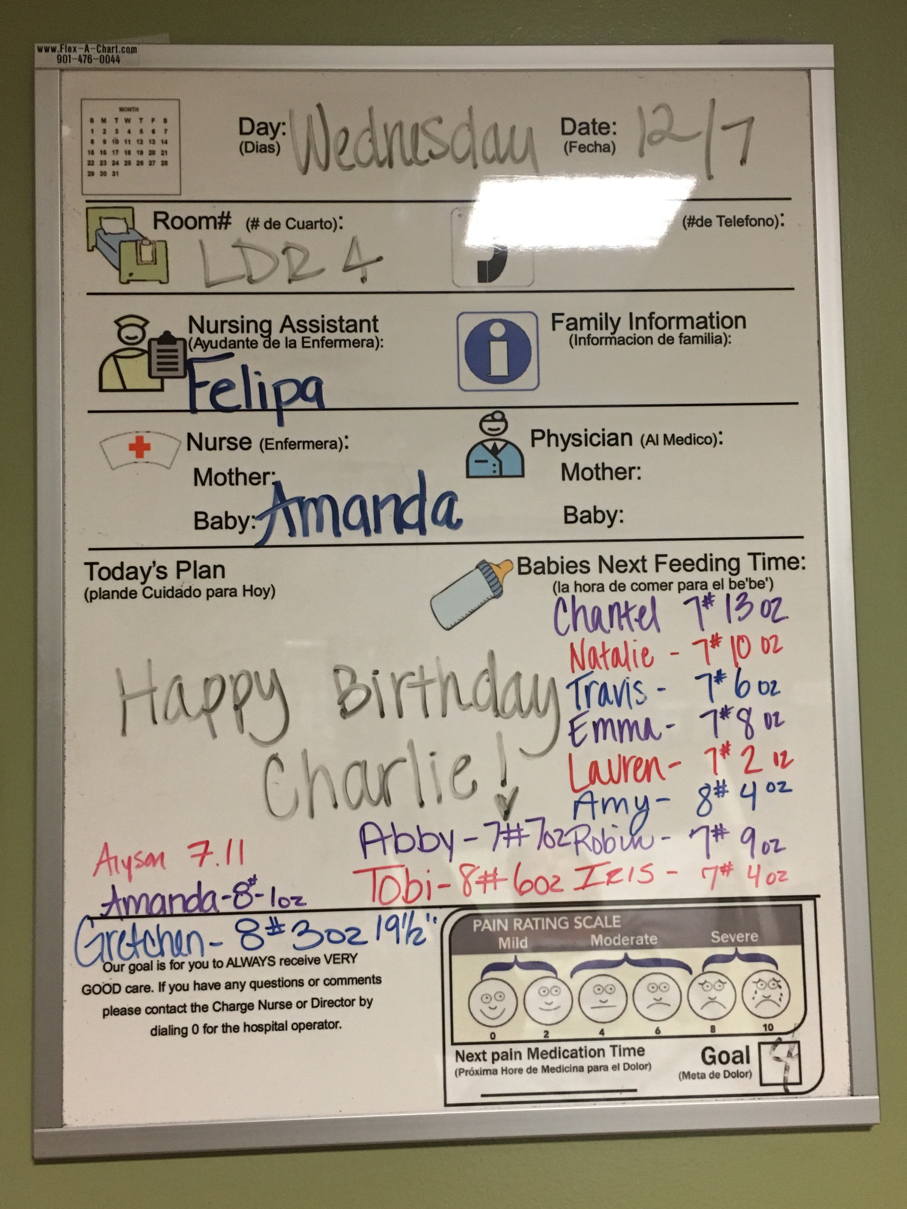 www.Flex-A-Chart.com
901-476-0044
MONTH
S M T W T F S
1 2 3 4 5 6 7
8 9 10 11 12 13 14
15 16 17 18 19 20 21
22 23 24 25 26 27 28
29 30 31
Day: Wednesday Date: 12/7
(Dias) (Fecha)
Room# (# de Cuarto): (#de Telefono):
LDR 4
Nursing Assistant Family Information
(Ayudante de la Enfermera): (Informacion de familia):
Felipa
Nurse (Enfermera): Physician (Al Medico):
Mother: Mother:
Baby: Amanda Baby:
Today's Plan Babies Next Feeding Time:
(plande Cuidado para Hoy) (la hora de comer para el be'be')
Chantel 7# 13 oz
Natalie - 7# 10 oz
Happy Birthday Travis - 7# 6 oz
Emma- 7# 8 oz
Charlie! Lauren- 7# 2 12
Amy- 8# 4 oz
Alyson 7.11 Abby-7#7oz Robin- 7# 9oz
Amanda-8#-1oz Tobi-8#6oz IRIS - 7# 4oz
Gretchen- 8#3oz 19½"
Our goal is for you to ALWAYS receive VERY
GOOD care. If you have any questions or comments
please contact the Charge Nurse or Director by
dialing 0 for the hospital operator.
PAIN RATING SCALE
Mild Moderate Severe
0 2 4 6 8 10
Next pain Medication Time Goal 4
(Próxima Hore de Medicina para el Dolor) (Meta de Dolor)